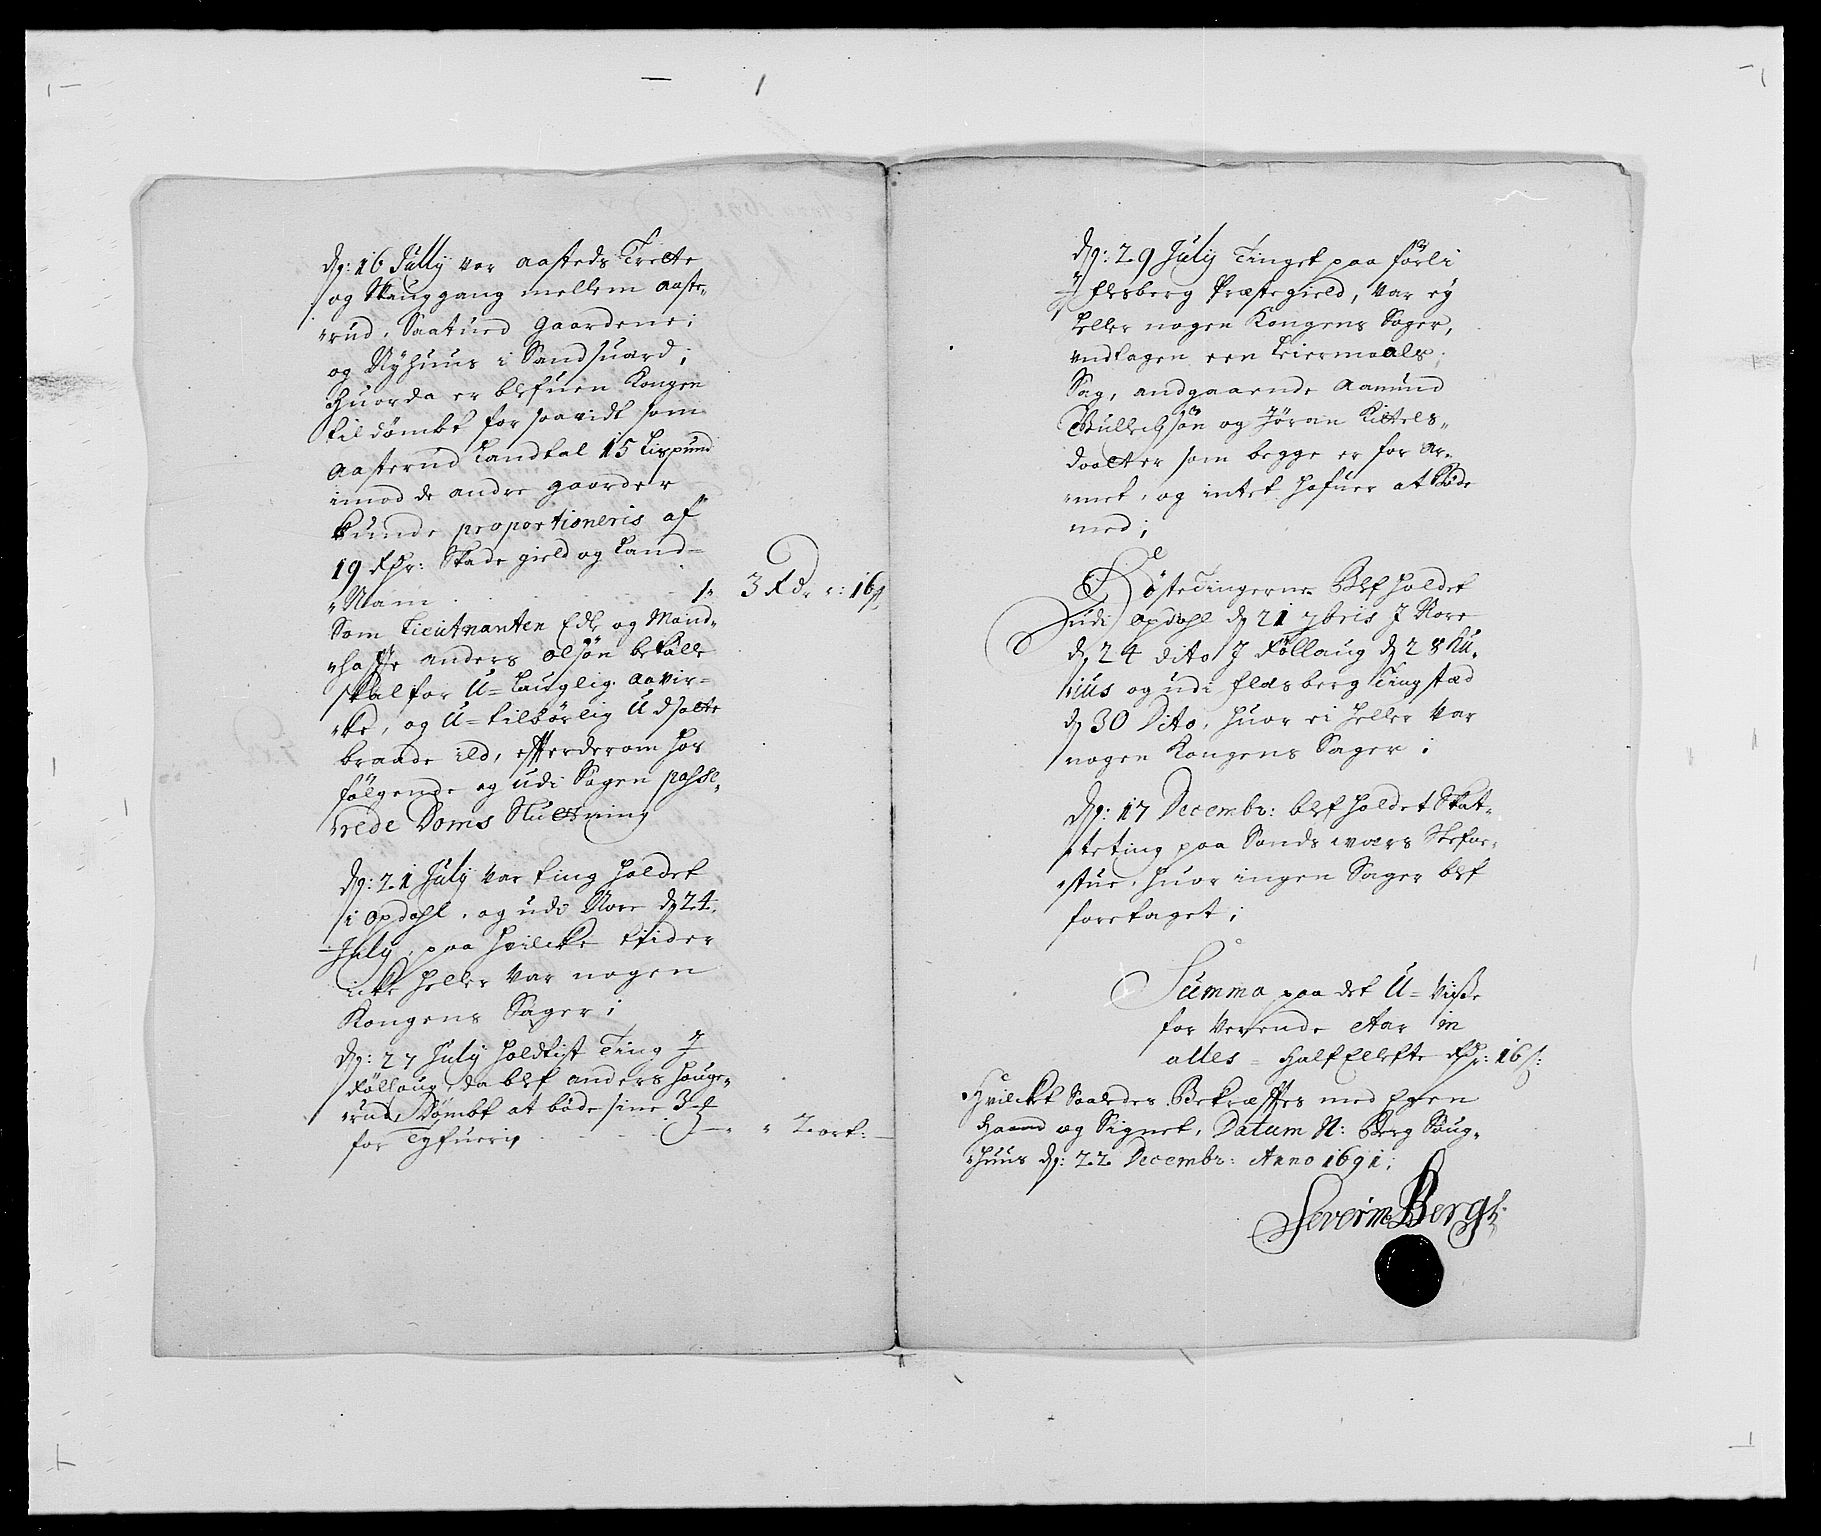 dg: 16 Jully var aasteds Trette
og Skauggang mellem aaste-
rud, Saatued gaardene;
og Nyhuus i Sandsuerd;
huorda er blefuen Kongen
til dømbt for saavidt som
aasterud Landtal 15 Lispund
imod de andre gaarder
kunde proportioneris af
19 Rdr: Skade gield og Land-
Nam . . . 3 Rdr ": 16 s
Som Lieutnanten Edle og Mand-
haffte anders olsøn betalle
skal for U-lauglig aavir-
ke, og U-tilbørlig Udsatte
braade ild, efferderom hos
følgende og udi Sagen passe-
rede Doms Slutning
dg: 21 July var ting holdet
i opdahl, og udi Nore dg 24
July, paa hvilcke tider
icke heller var nogen
Kongens Sager;
dg: 27 July holdtist Ting J
Rollaug, da blef anders houge-
rud Dømbt at bøde sine 3
for Tyfueri, . . . " " 2 ort:
dg: 29 July Tinget paa førli
J flesberg Præstegield, var ey
heller nogen Kongens Sager,
undtagen een Leiermaals
Sag, andgaaende aamund
Gullichsøn og Jøran Kittels-
daatter som begge er for ar-
met, og intet hafuer at bøde
med;
Høstetingerne Blef holdet
udi opdahl dg 21 7bris J Nore
dg 24 dito J Rollaug dg 28 hu-
ius og udi flesberg Tingstæd
dg 30 Dito, huor ei heller var
nogen Kongens Sager;
dg: 17 Decembr: blef holdet Skat-
teting paa Sandswærs Skefer-
stue, huor ingen Sager blef
foretaget;
Summa paa det U-visse
for verende Aar in
alles = Half Ellefte Rdr: 16 s:
Hvilcket Saaledes Bekræfftes med Egen
Haand og Signet, Datum N: Berg Saug-
huus dg: 22 Decembr: Anno 1691;
Severin Berg